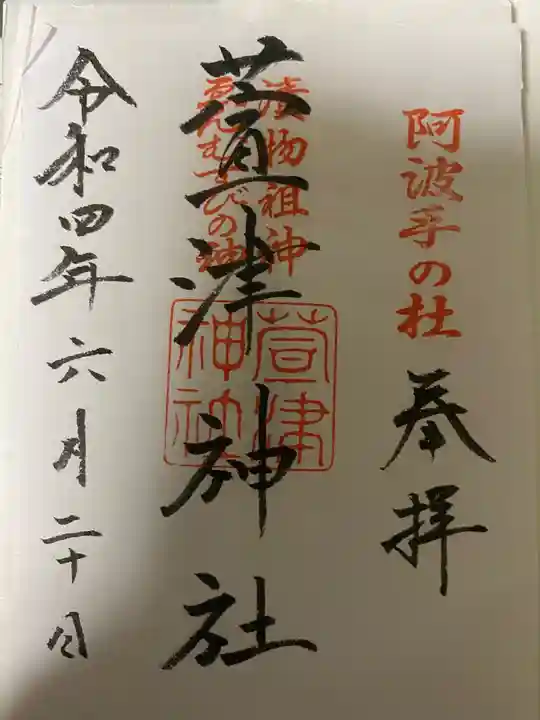 阿波手の杜
奉拝
漬物祖神
縁むすびの神
萱津神社
萱津
神社
令和四年六月二十日